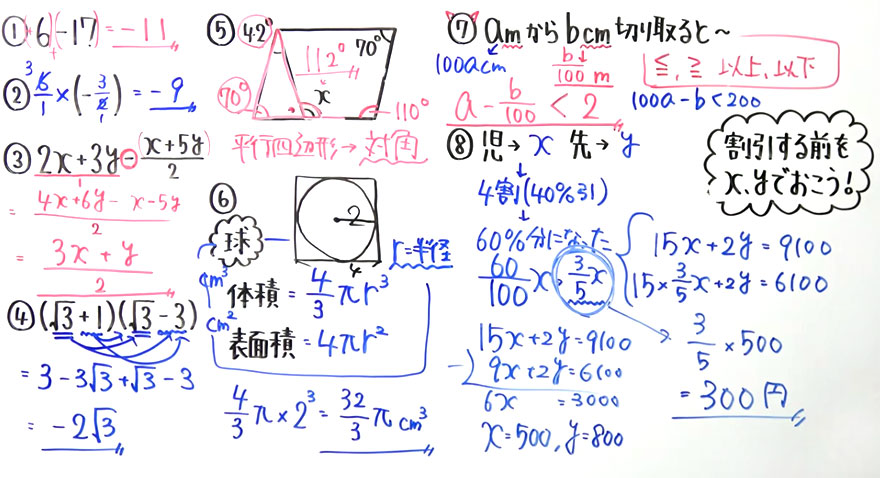 ① +6+(-17) = -11
② 6/1 × (-3/2) = -9
3
1
③ 2x+3y - (x+5y)/2
= (4x+6y - x-5y)/2
= (3x+y)/2
④ (√3+1)(√3-3)
= 3-3√3+√3-3
= -2√3
⑤ 42° 70°
112°
70° x 110°
平行四辺形→対角
⑥
2
4
球 r=半径
cm³ 体積 = 4/3 πr³
cm² 表面積 = 4πr²
4/3 π×2³ = 32/3 π cm³
⑦ amからbcm切り取ると〜
100acm b/100 m
≦, ≧ 以上、以下
a - b/100 < 2
100a-b<200
⑧ 児→x 先→y
4割(40%引)
↓
60%分になった
60/100 x, 3/5 x
割引する前を
x, yでおこう!
15x+2y=9100
15×3/5x+2y=6100
15x+2y=9100
-) 9x+2y=6100
6x =3000
x=500, y=800
3/5 ×500
=300円